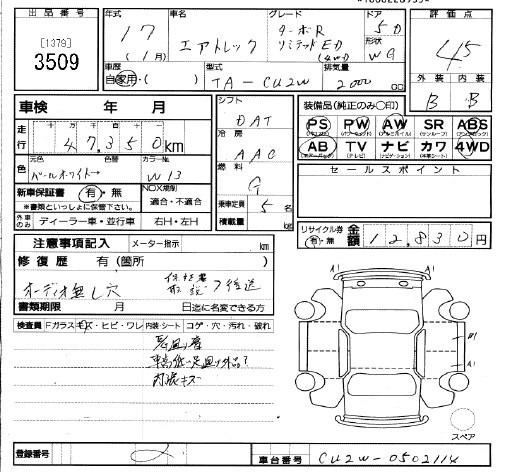 出品番号
[1378]
3509
年式
17
(1月)
車名
エアトレック
グレード
ターボR
リミテッドED
(4WD)
ドア
5D
形状
WG
評価点
4.5
外装 内装
B B
車歴
自家用・( )
型式
TA-CU2W
排気量
2000 cc
車検 年 月
走行
十万 万 千 百 十
47,350km
元色 色替 カラーNo.
色 パールホワイト→ W13
新車保証書 有・無
※書類といっしょに保管下さい。
NOX規制
適合・不適合
外車のみ ディーラー車・並行車 右H・左H
シフト
DAT
冷房
AAC
燃料
G
乗車定員 5名
積載量 kg
装備品(純正のみ○印)
PS PW AW SR ABS
AB TV ナビ カワ 4WD
セールスポイント
リサイクル券
有・無
金額 12,830円
注意事項記入 メーター指示 km
修復歴 有(箇所 )
オーディオ無し穴
保証書
取説 後送
書類期限 月 日迄に名変できる方
検査員 Fガラス キズ・ヒビ・ワレ 内装・シート コゲ・穴・汚れ・破れ
車高低
内張キズ
A1 A1
B1
A1
スペア
登録番号
車台番号 CU2W-0502114